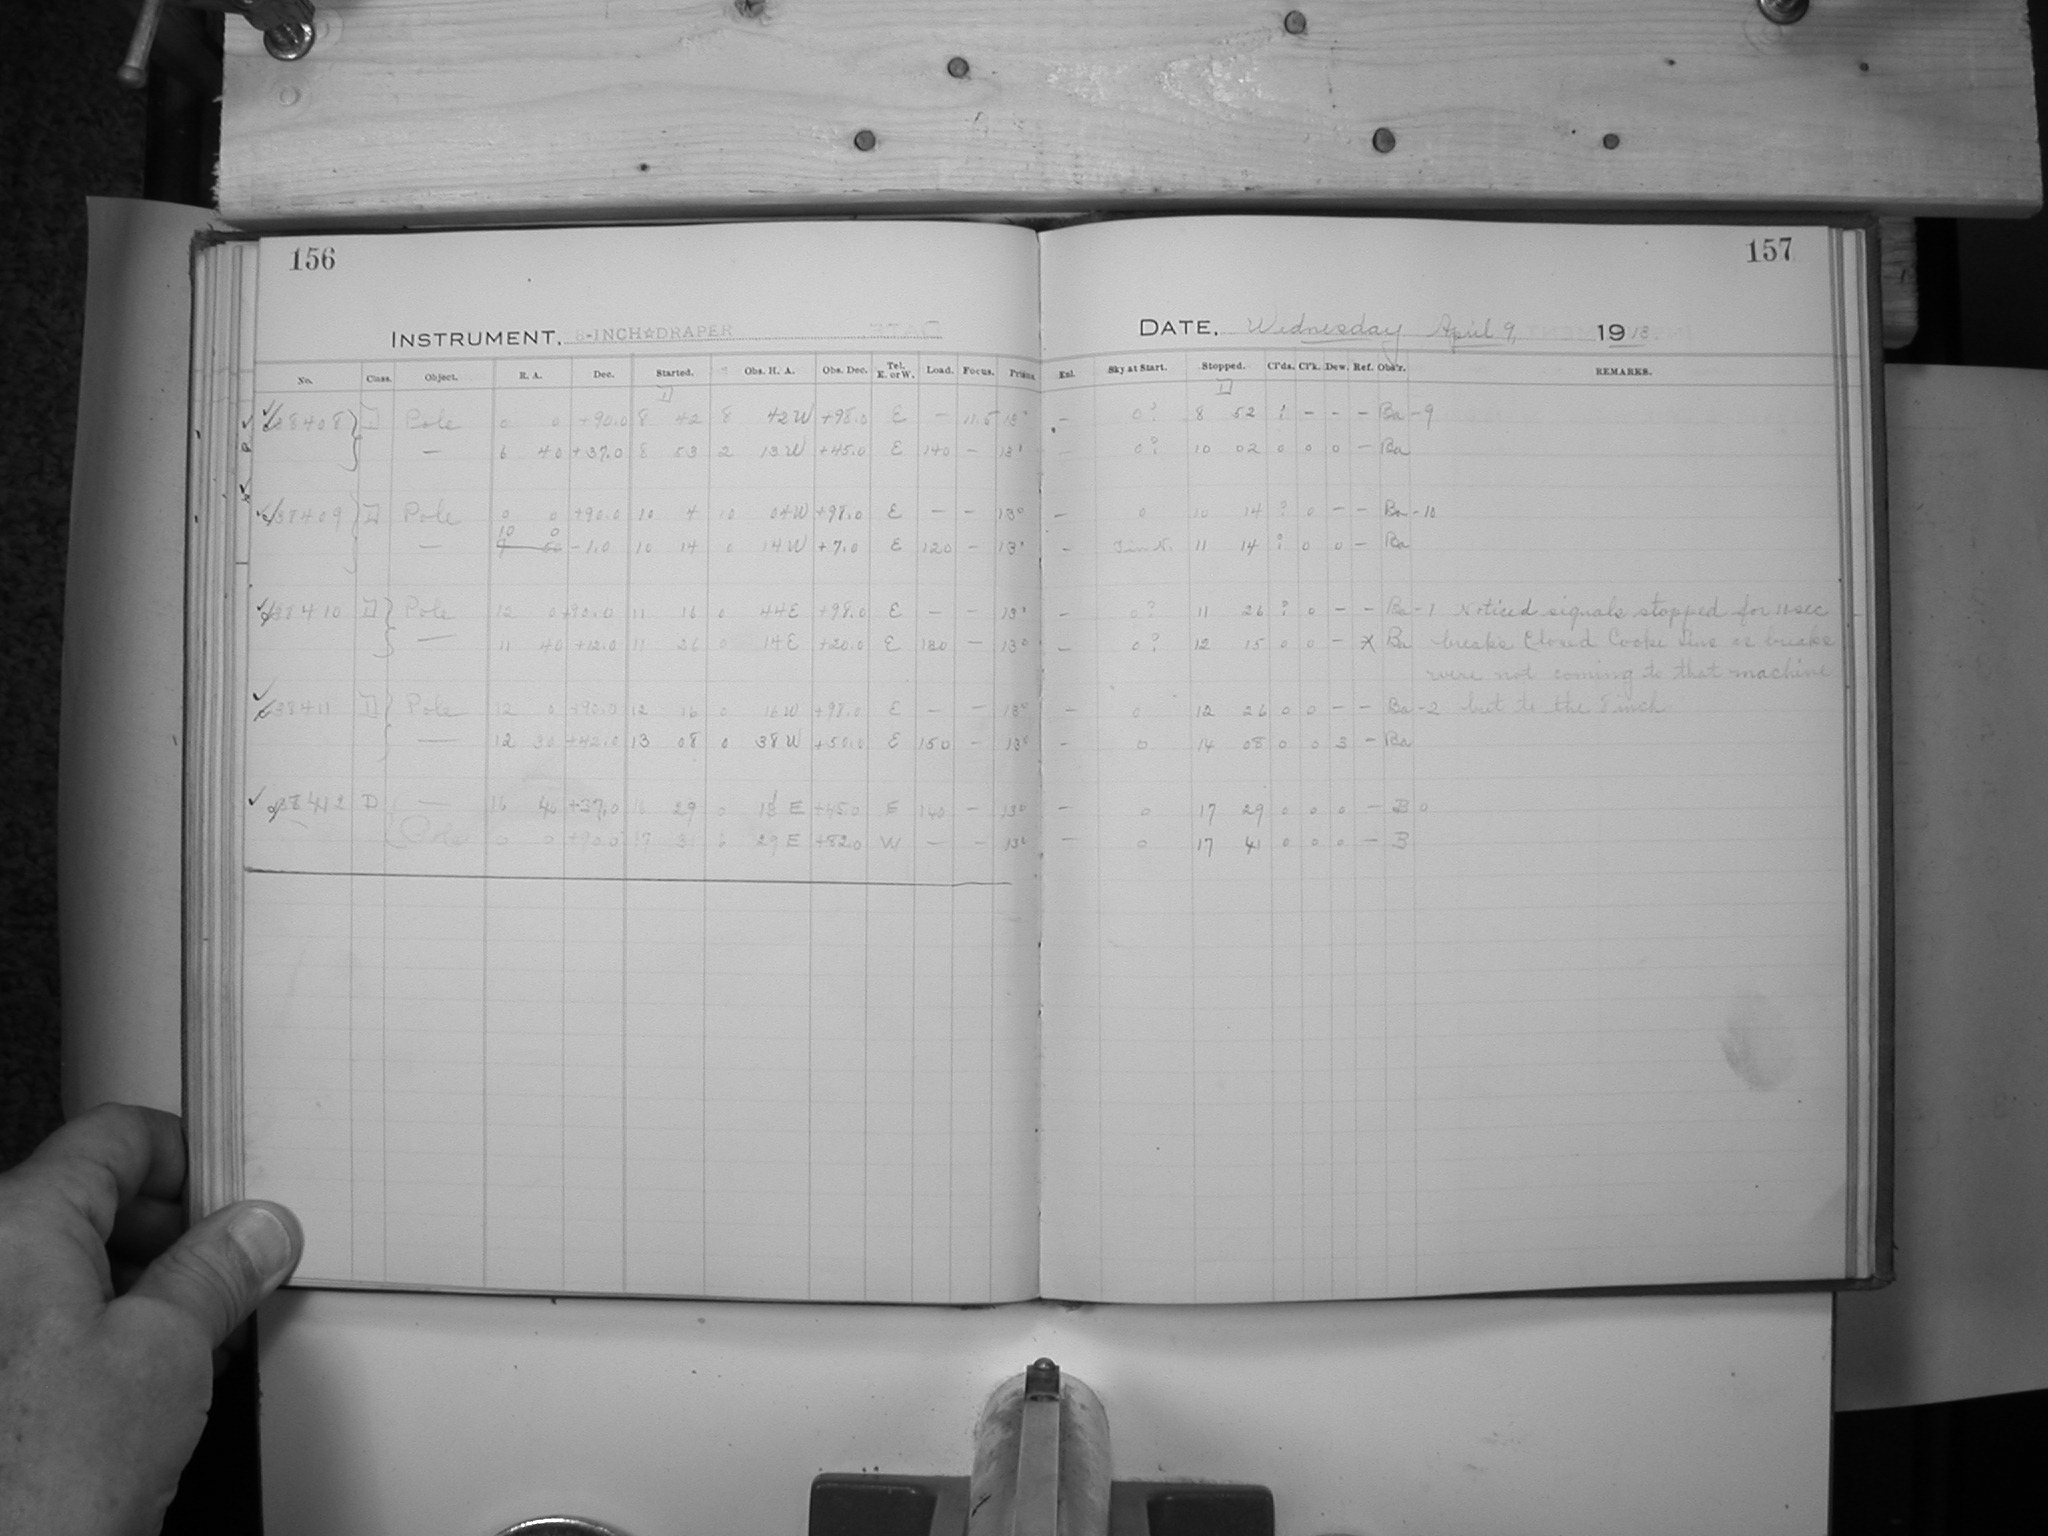 156
157
INSTRUMENT, 8-INCH☆DRAPER
DATE, Wednesday April 9, 1913
No. Class. Object. R. A. Dec. Started. Obs. H. A. Obs. Dec. Tel. E. or W. Load. Focus. Prisms Enl. Sky at Start. Stopped. Cl'ds. Cl'k. Dew. Ref. Obs'r. REMARKS.
38408 D Pole 0 0 +90.0 8 42 8 42W +98.0 E — 11.5 13° — 0? 8 52 ? - - - Ba -9
— 6 40 +37.0 8 53 2 13W +45.0 E 140 - 13° 0? 10 02 0 0 0 - Ba
38409 D Pole 0 0 +90.0 10 4 10 04W +98.0 E — — 13° — 0 10 14 ? 0 - - Ba -10
10 0
— -1.0 10 14 0 14W +7.0 E 120 - 13° — 11 14 ? 0 0 - Ba
38410 D Pole 12 0 +90.0 11 16 0 44E +98.0 E — — 13° — 0? 11 26 ? 0 - - Ba -1 Noticed signals stopped for 11 sec
— 11 40 +12.0 11 26 0 14E +20.0 E 130 - 13° — 0? 12 15 0 0 - X Ba breaks Closed Cooke line as breaks
were not coming to that machine
38411 D Pole 12 0 +90.0 12 16 0 16W +98.0 E — — 13° — 0 12 26 0 0 - - Ba -2 but to the 8 inch
— 12 30 +42.0 13 08 0 38W +50.0 E 150 - 13° — 0 14 08 0 0 3 - Ba
38412 D — 16 40 +37.0 16 29 0 E +45.0 E 140 - 13° — 0 17 29 0 0 0 - B 0
Pole 0 0 +90.0 17 31 6 29E +82.0 W — — 13° — 0 17 41 0 0 0 - B